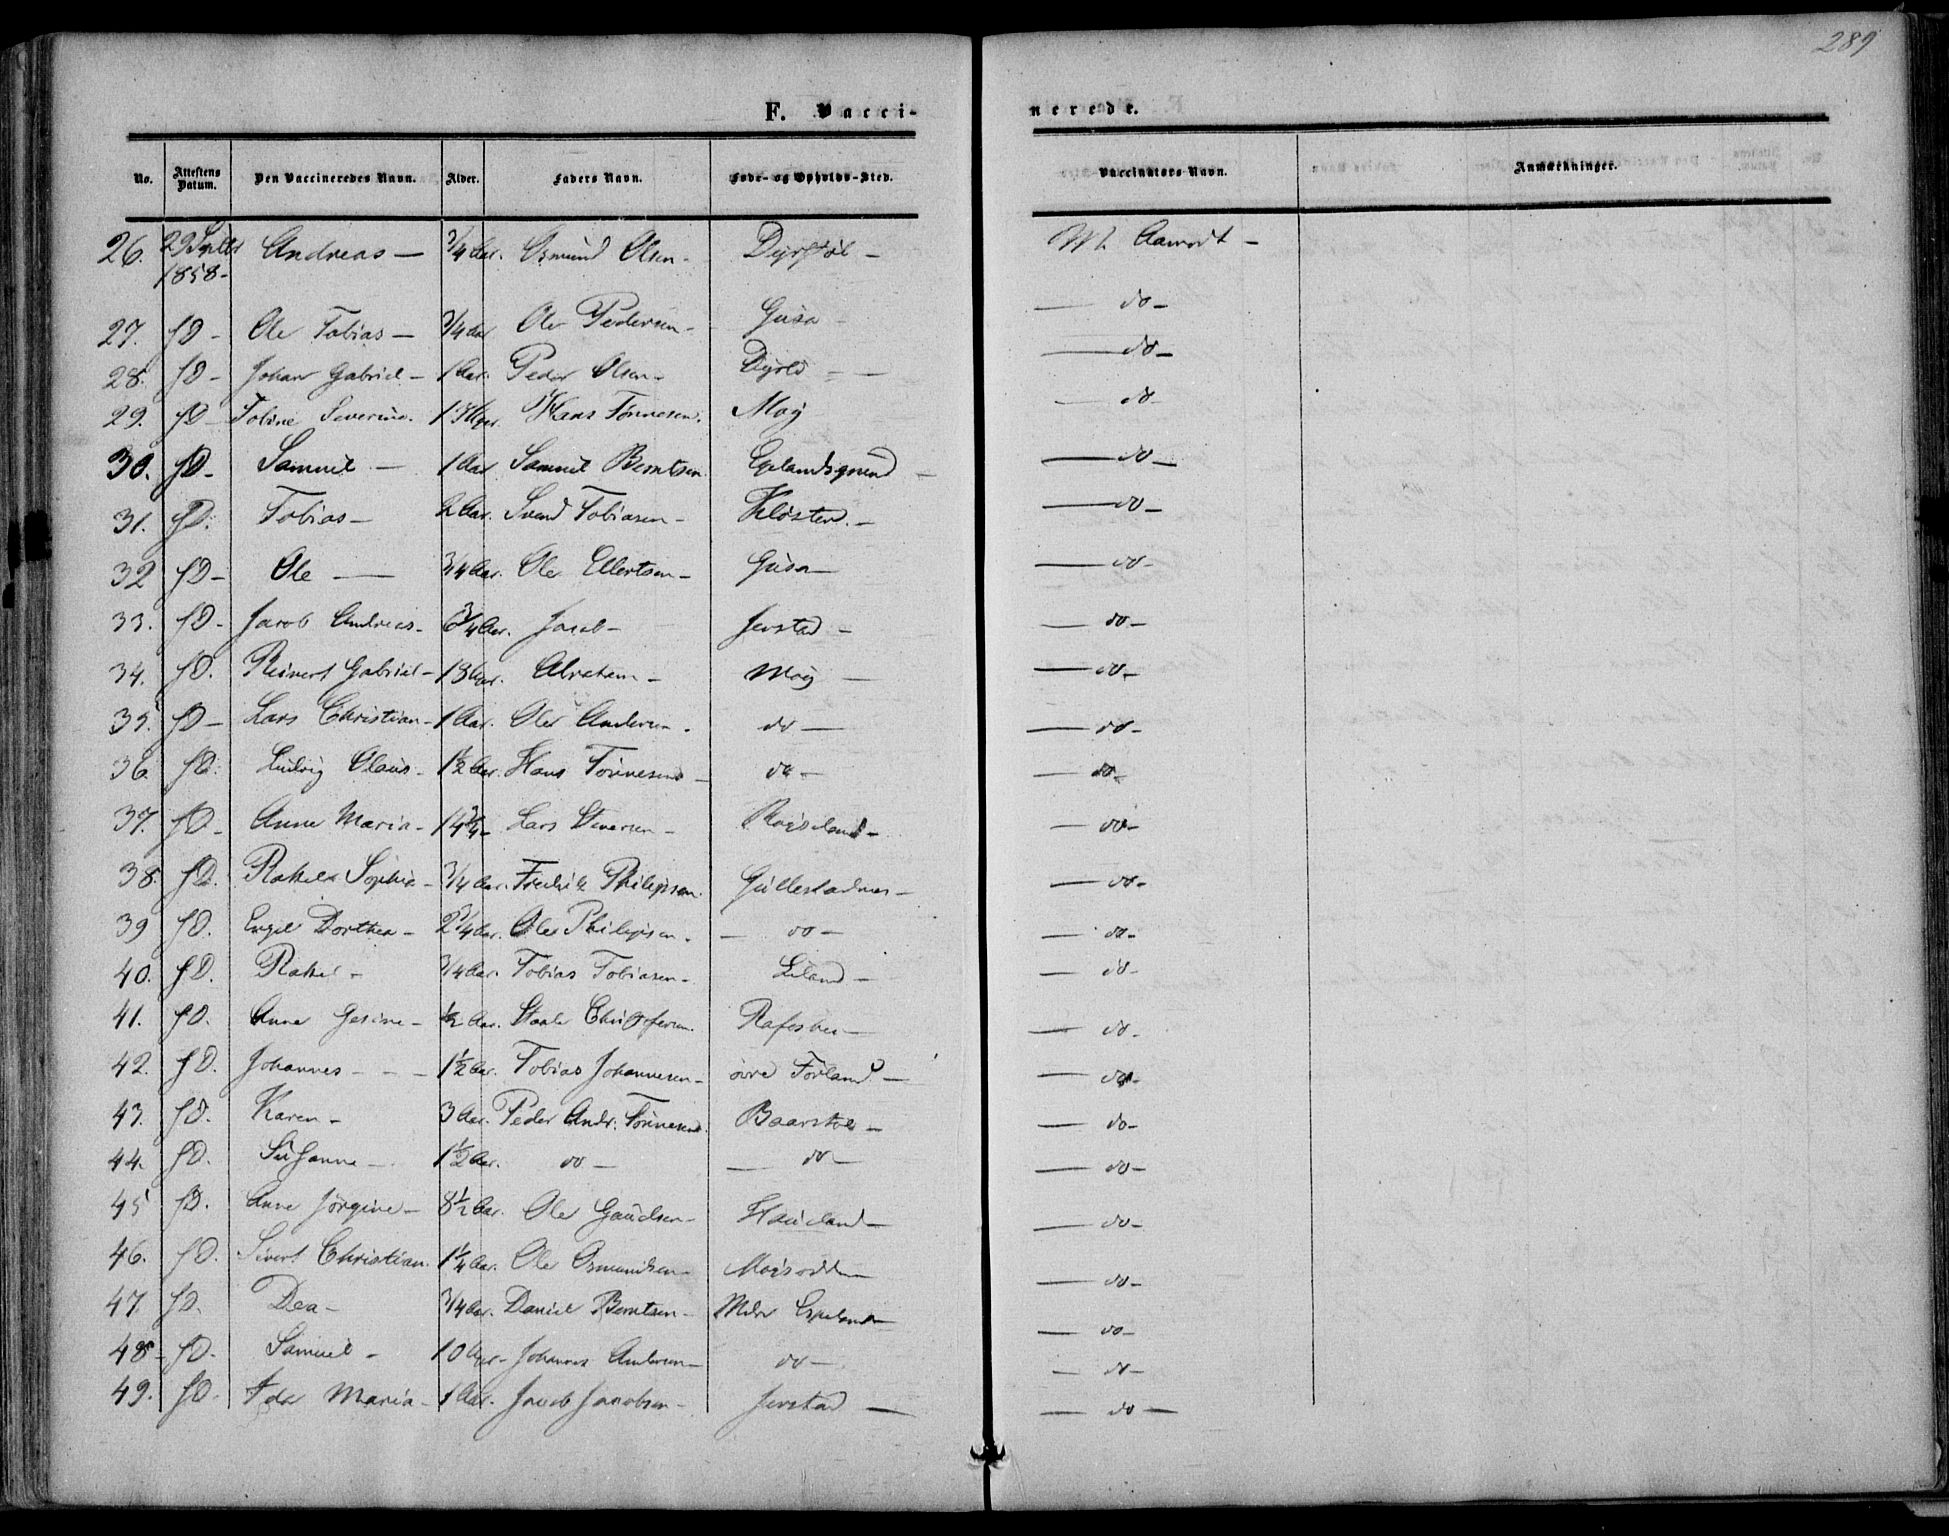 289
F. Vacci-
nerede.
No. Attestens Datum. Den Vaccineredes Navn. Alder. Faders Navn. Føde- og Opholds-Sted. Vaccinators Navn. Anmærkninger.
26. 29 1858- Andreas — 3/4 Aar. Osmund Olsen - M. Aamodt -
27. fD - Ole Tobias — 3/4 Aar Ole Pedersen - Gusa - — do -
28. fD - Johan Gabriel - 1 Aar. Peder Olsen - — do -
29. fD - Tobine Severine. Hans Tønnesen. Moy — do -
30. fD - Samuel — 1 Aar Samuel Berntsen — do -
31. fD. Tobias - 2 Aar. Svend Tobiasen - — do -
32 fD - Ole — 3/4 Aar. Ole Ellertsen - Gusa - — do -
33. fD - Jacob Andreas - 6 3/4 Aar. Jacob - Jerstad - — do -
34. fD. Reinert Gabriel - Abraham - Moy — — do -
35. fD - Lars Christian - 1 Aar. Ole Andersen. do — — do -
36. fD. Ludvig Olaus - 1½ Aar. Hans Tønnesen - do - — do -
37. fD - Anne Maria - Lars - — do -
38. fD. Sophia - 3/4 Aar. Fredrik Philipsen. Gullestadnes - — do -
39 fD. Engel Dorthea - 2 3/4 Aar. Ole Philipsen. — do - — do -
40. fD. Rakel - 3/4 Aar. Tobias Tobiasen - Leland - — do -
41. fD. Anne Gesine - ½ Aar. Staale Christofersen. Rafoshei — — do -
42. fD. Johannes - - - 1½ Aar. Tobias Johannesen - øvre Førland — — do -
43. fD. Karen - 3 Aar. Peder Andr. Tønnesen. Baarstøl - — do -
44. fD. Susanne - 1½ Aar. do - — do - — do -
45 fD. Anne Jørgine - 8½ Aar. Ole Haueland - — do -
46. fD. Sivert Christian. 1¼ Aar. Ole Osmundsen - Moisodden — do -
47. fD. Dea - 3/4 Aar. Daniel Berntsen - Espeland — do -
48 - fD. Samuel - Johannes Andersen - do - — do -
49. fD. Maria - 1 Aar. Jacob Jacobsen - Jerstad — — do —